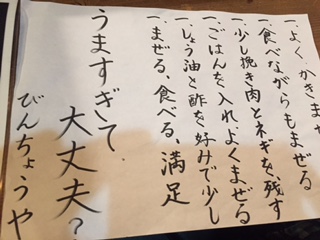 一.よく、かきまぜ
一.食べながらもまぜる
一.少し挽き肉とネギを残す
一.ごはんを入れよくまぜる
一.しょう油と酢を好みで少し
一.まぜる、食べる、満足
うますぎて
大丈夫?
びんちょうや